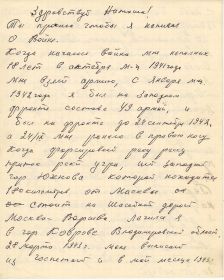 Здравствуй Наташа!
Ты просиш чтобы я написал
О Войне.
Когда началась война мне исполнил
18 лет в октябре м-ц 1941 года
Мы взят армию, С января м-ц
1942 года я был на Западном
фронте составе 49 армии, и
был на фронте до 24 сентября 1942г,
а 24/IX мне ранело в правою ногу
Когда форсировал реку
приток реки угри, шт западнее
гор Юхнова которой находится
километра от Москвы он
стоит на Шасейной дороге
Москва-Варшава. Лечился я
в гор Коврове Владимирской област.
28 марта 1943г. меня выписали
из госпиталя и в мой месяце 1943г.